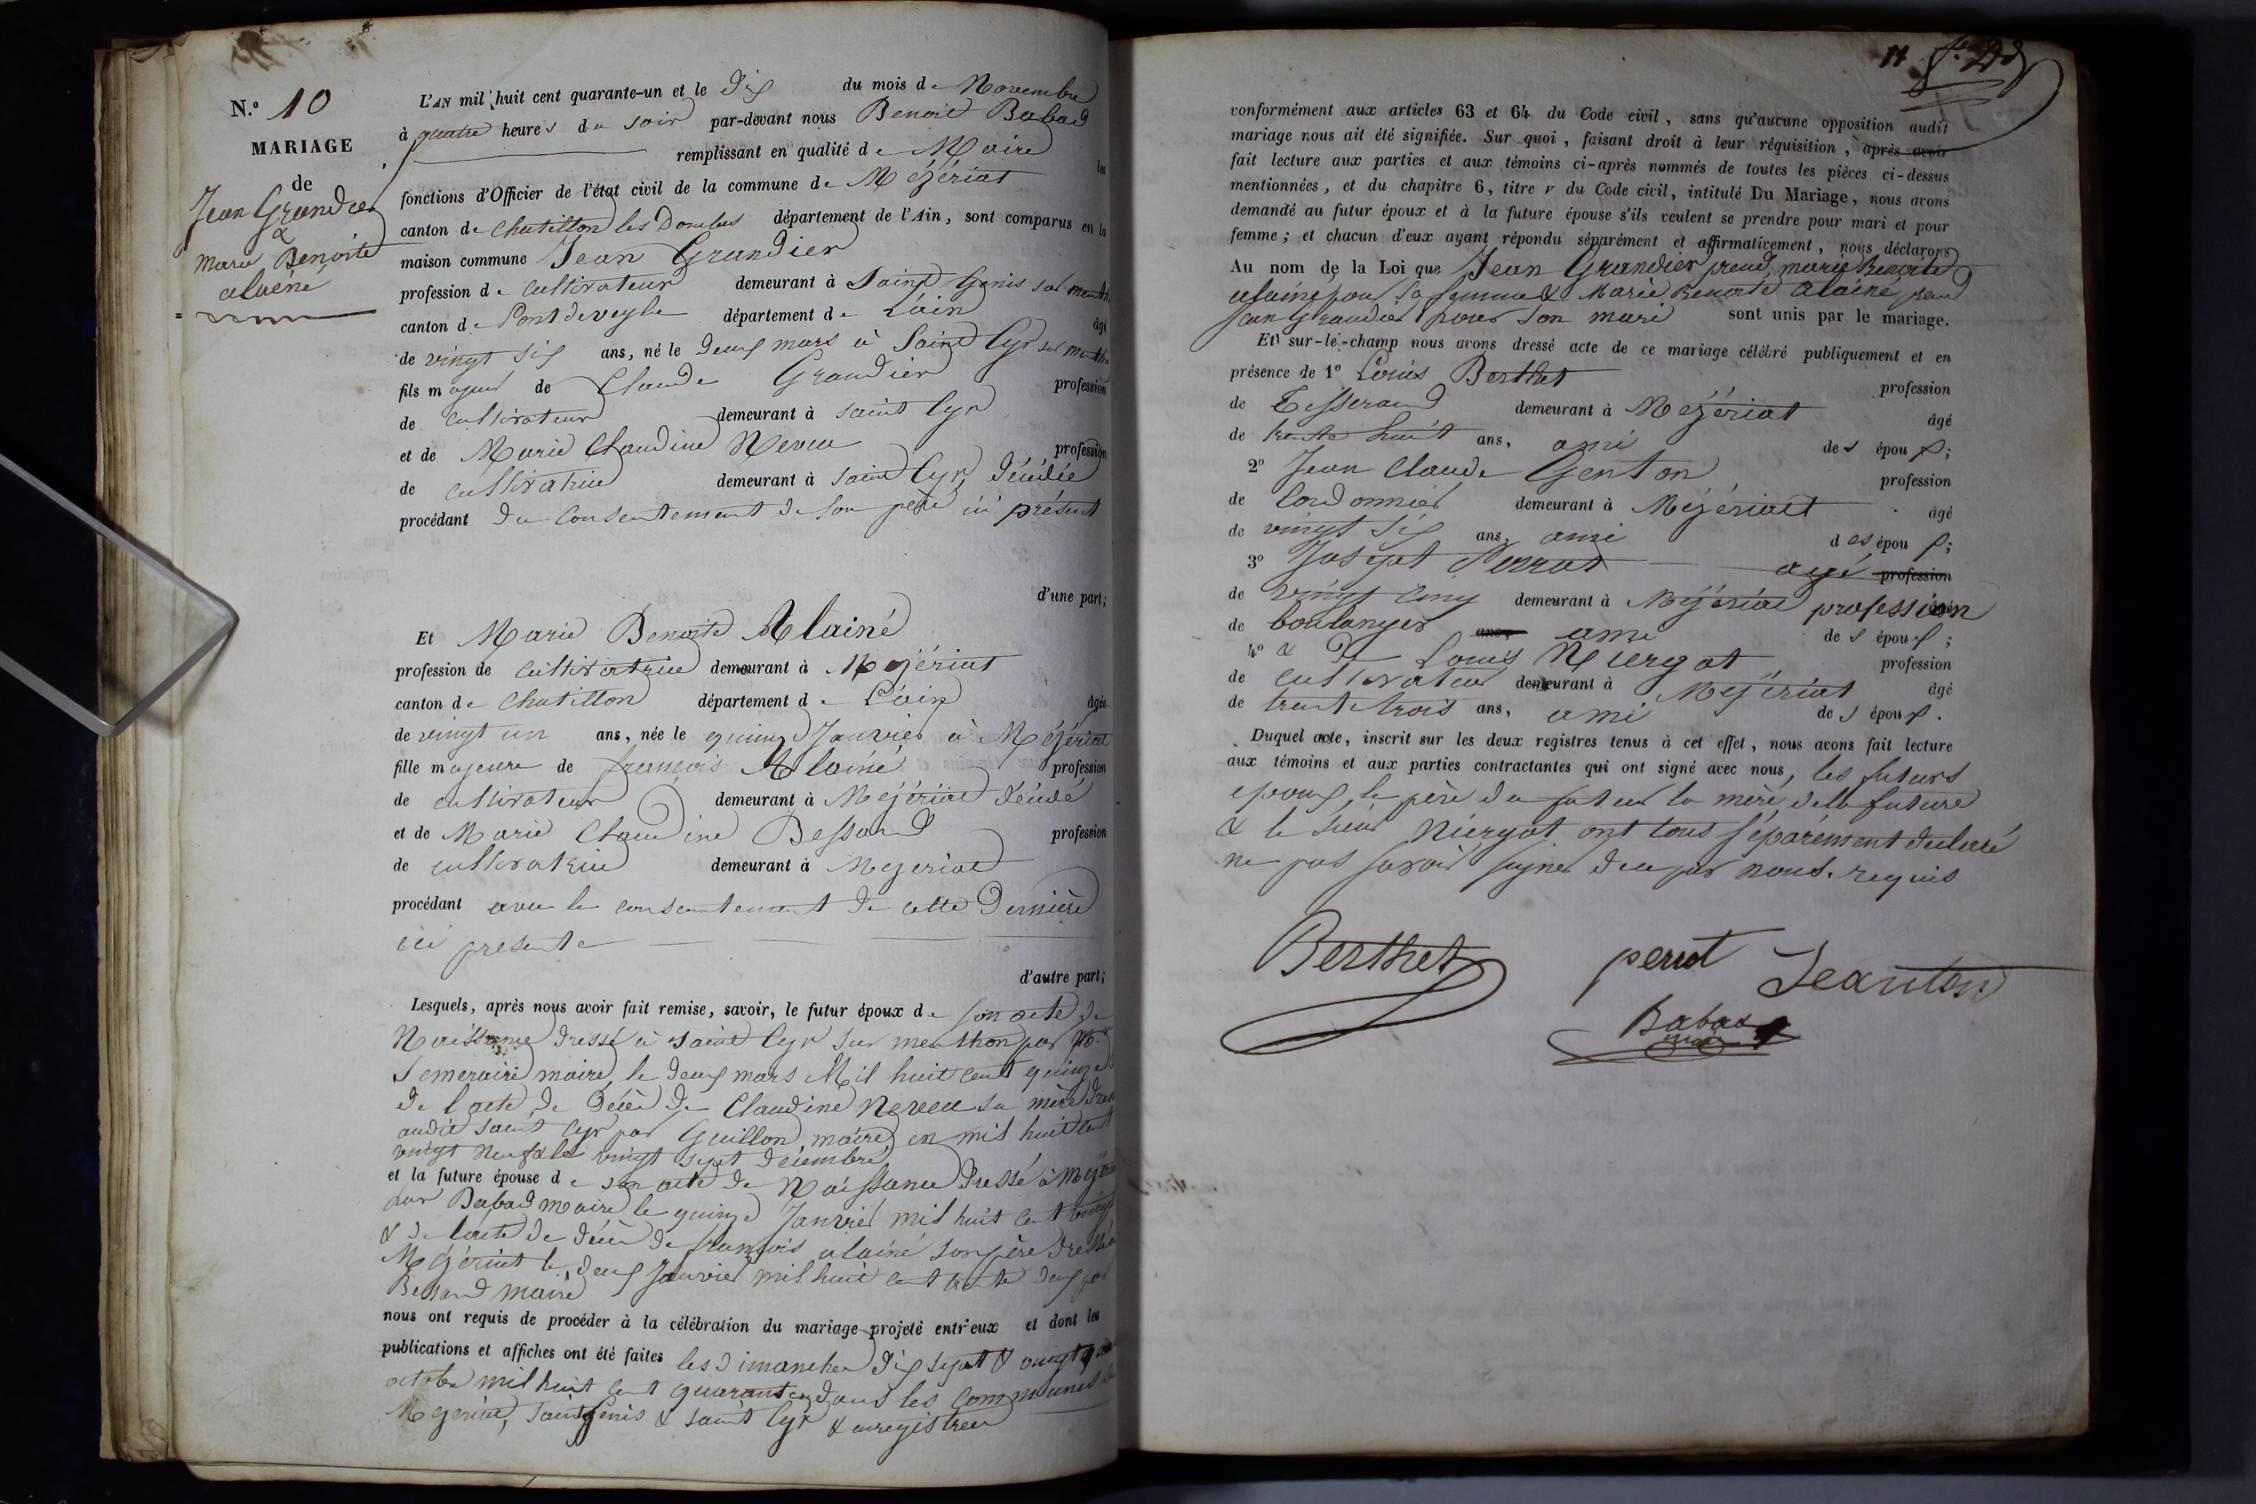 N.º 10
MARIAGE
de
Jean Grandier
&
Marie Benoite
alainé
L'AN mil huit cent quarante-un et le dix du mois de Novembre
à quatre heures du soir par-devant nous Benoit Babad
remplissant en qualité de Maire les
fonctions d'Officier de l'état civil de la commune de Mézériat
canton de Chatillon les Dombes département de l'Ain, sont comparus en la
maison commune Jean Grandier
profession de Cultivateur demeurant à Saint Genis sur menthon
canton de Pont de veyle département de L'ain âgé
de vingt six ans, né le deux mars à Saint Cyr sur menthon
fils majeur de Claude Grandier profession
de cultivateur demeurant à saint Cyr
et de Marie Claudine Neveu profession
de cultivatrice demeurant à saint Cyr, décédée
procédant du consentement de son père ici présent
d'une part;
Et Marie Benoite Alainé
profession de cultivatrice demeurant à Mézériat
canton de Chatillon département de L'ain âgée
de vingt un ans, née le quinze Janvier à Mézériat
fille majeure de françois Alainé profession
de cultivateur demeurant à Mézériat décédé
et de Marie Claudine Bessard profession
de cultivatrice demeurant à Mezeriat
procédant avec le consentement de cette dernière
ici presente
d'autre part;
Lesquels, après nous avoir fait remise, savoir, le futur époux de son acte de
Naissance dressé à saint Cyr sur menthon par Mr
maire, le deux mars Mil huit cent quinze
de l'acte de décès de Claudine Neveu sa mère
audit saint Cyr par Guillon maire en mil huit cent
vingt neuf & le vingt sept décembre
et la future épouse de son acte de Naissance dressé à Mézériat
par Babad maire le quinze Janvier mil huit cent vingt
& de l'acte de décès de françois alainé son père dressé à
Mézériat le deux Janvier mil huit cent trente deux par
Bessard maire
nous ont requis de procéder à la célébration du mariage projeté entr'eux et dont les
publications et affiches ont été faites les dimanches dix sept & vingt quatre
octobre mil huit cent quarante un dans les communes de
Mezeriat, saint Genis & saint Cyr & enregistrées
11
vonformément aux articles 63 et 64 du Code civil, sans qu'aucune opposition audit
mariage nous ait été signifiée. Sur quoi, faisant droit à leur réquisition, après avoir
fait lecture aux parties et aux témoins ci-après nommés de toutes les pièces ci-dessus
mentionnées, et du chapitre 6, titre v du Code civil, intitulé Du Mariage, nous avons
demandé au futur époux et à la future épouse s'ils veulent se prendre pour mari et pour
femme; et chacun d'eux ayant répondu séparément et affirmativement, nous déclarons
Au nom de la Loi que Jean Grandier prend marie Benoite
alainé pour sa femme & Marie Benoite alainé prend
Jean Grandier pour son mari sont unis par le mariage.
Et sur-le-champ nous avons dressé acte de ce mariage célébré publiquement et en
présence de 1º Louis Berthet profession
de Tisserand demeurant à Mezériat âgé
de trente huit ans, ami des époux;
2º Jean Claude Genton profession
de Cordonnier demeurant à Mézériat âgé
de vingt six ans, ami des époux;
3º Josept Perrot agé profession
de vingt cinq demeurant à Mézériat profession
de boulanger ans, ami des époux;
4º & de Louis Niergat profession
de cultivateur demeurant à Mézériat âgé
de trente trois ans, ami des époux.
Duquel acte, inscrit sur les deux registres tenus à cet effet, nous avons fait lecture
aux témoins et aux parties contractantes qui ont signé avec nous, les futurs
epoux, le père du futur la mère de la future
& le sieur Niergat ont tous séparément déclaré
ne pas savoir signer de ce par nous requis
Berthet perrot Jeanton
Babad
maire